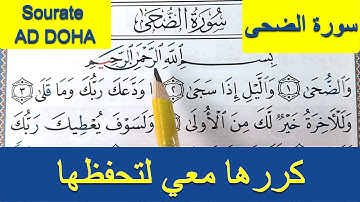 Sourate
AD DOHA
سورة الضحى
سُورَةُ الضُّحَى
بِسْمِ اللَّهِ الرَّحْمَٰنِ الرَّحِيمِ
وَالضُّحَىٰ ١ وَاللَّيْلِ إِذَا سَجَىٰ ٢ مَا وَدَّعَكَ رَبُّكَ وَمَا قَلَىٰ ٣
وَلَلْآخِرَةُ خَيْرٌ لَّكَ مِنَ الْأُولَىٰ ٤ وَلَسَوْفَ يُعْطِيكَ رَبُّكَ
كررها معي لتحفظها